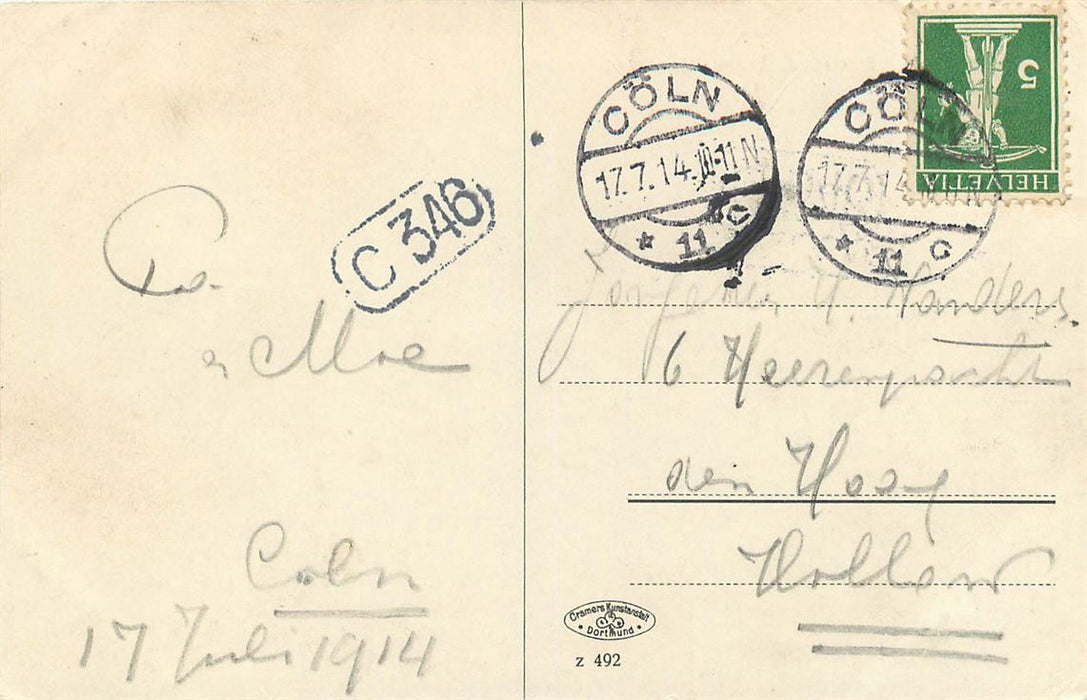 Pa.
Moe
Coln
17 Juli 1914
C 346
CÖLN
17.7.14.10-11N
* 11 C
CÖLN
17.7.14 10-11N
* 11 C
5
HELVETIA
H. Wanders.
6
den Haag
Holland
Cramers Kunstanstalt
• Dortmund •
z 492